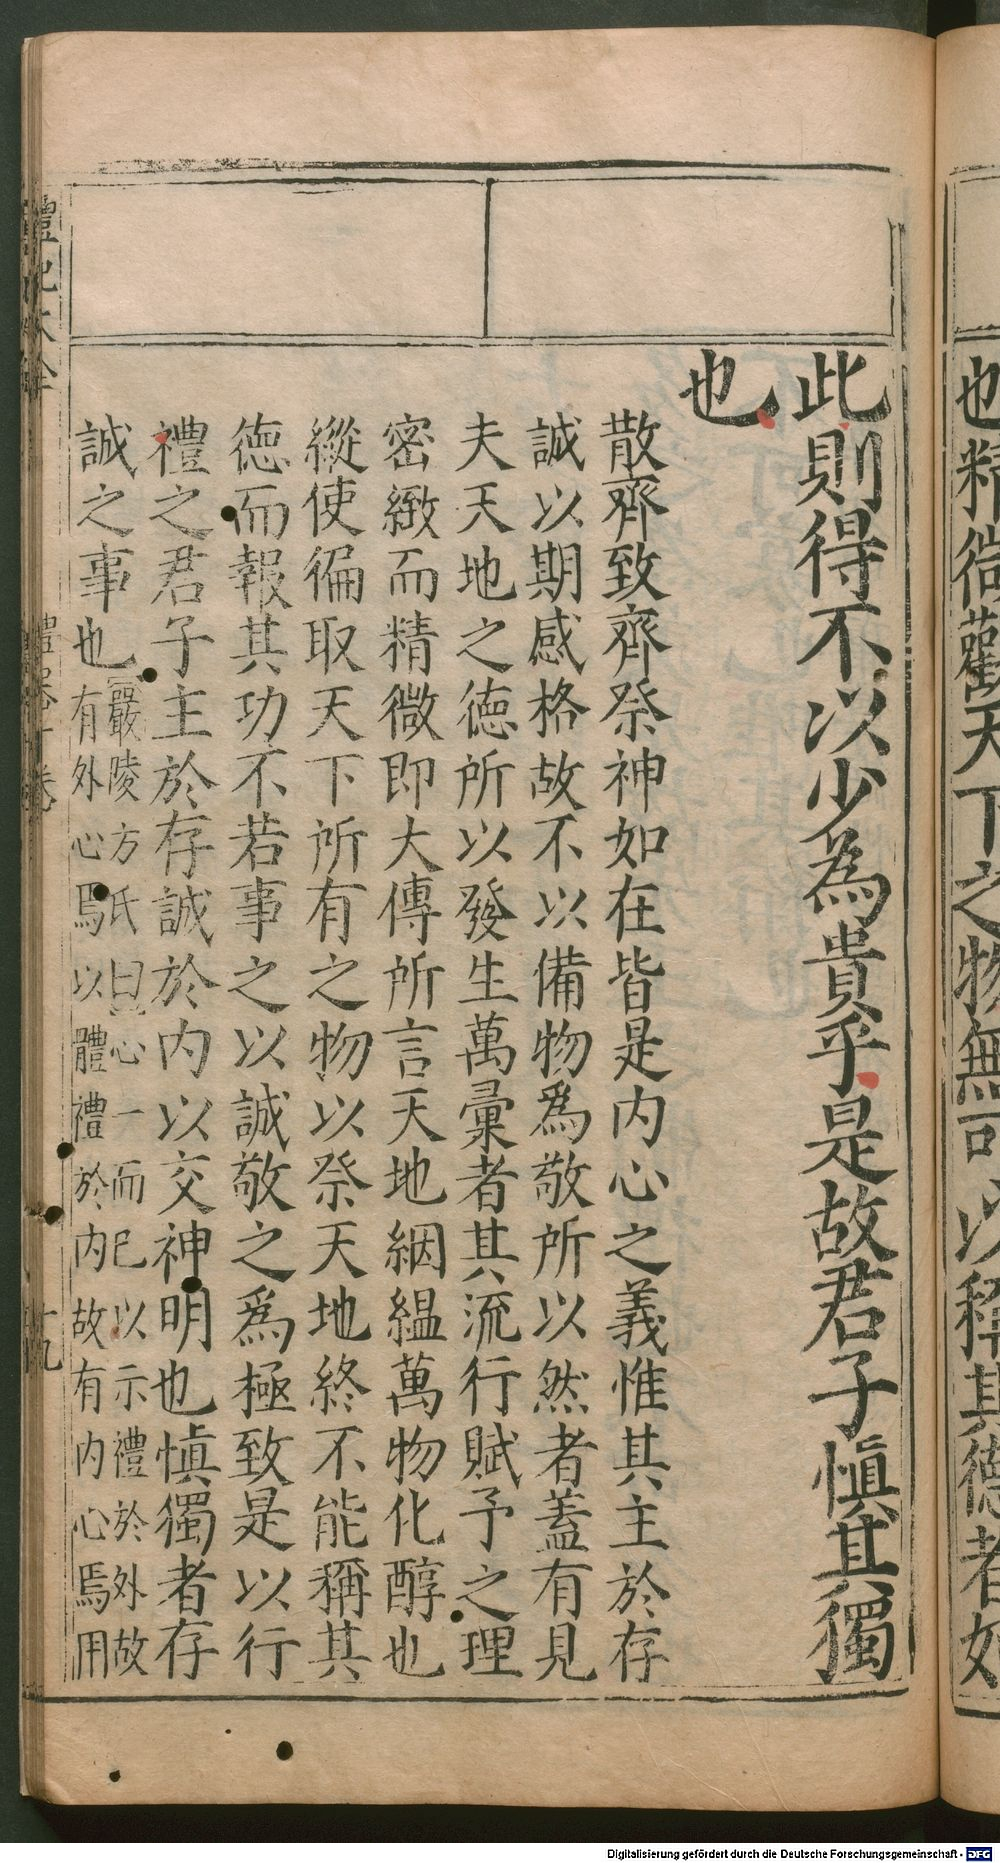 也精微觀天下之物無可以稱其德者如
此則得不以少為貴乎是故君子慎其獨
也
散齊致齊祭神如在皆是内心之義惟其主於存
誠以期感格故不以備物爲敬所以然者蓋有見
夫天地之德所以發生萬彙者其流行賦予之理
密緻而精微即大傳所言天地絪縕萬物化醇也
縱使徧取天下所有之物以祭天地終不能稱其
德而報其功不若事之以誠敬之爲極致是以行
禮之君子主於存誠於内以交神明也慎獨者存
誠之事也
嚴陵方氏曰心一而已以示禮於外故
有外心焉以體禮於内故有内心焉用
禮記大全
禮器十卷
十九
Digitalisierung gefördert durch die Deutsche Forschungsgemeinschaft - DFG